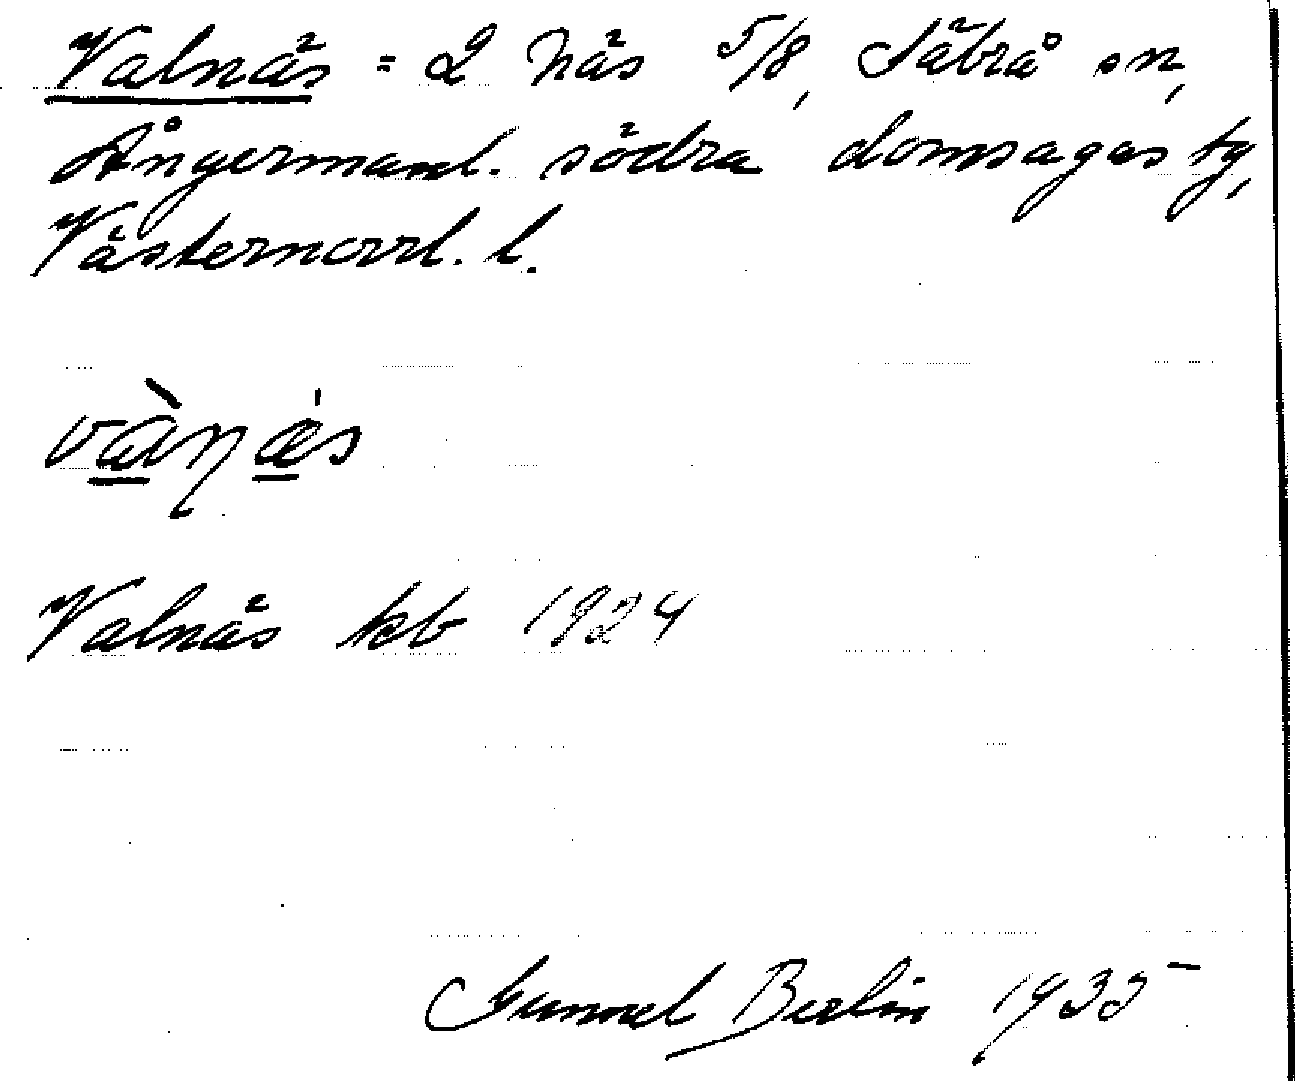 Valnäs = 2 Näs 5/8, Säbrå sn,
Ångermanl. södra domsagas tg,
Västernorrl. l.
Valnäs kb 1924
Gunnel Berlin 1935